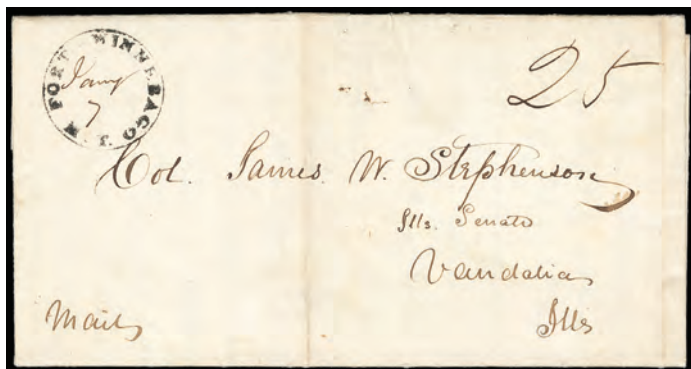 FORT WINNEBAGO
Jany
7
25
Col. James. W. Stephenson
Ills. Senate
Vandalia
Ills
Mail